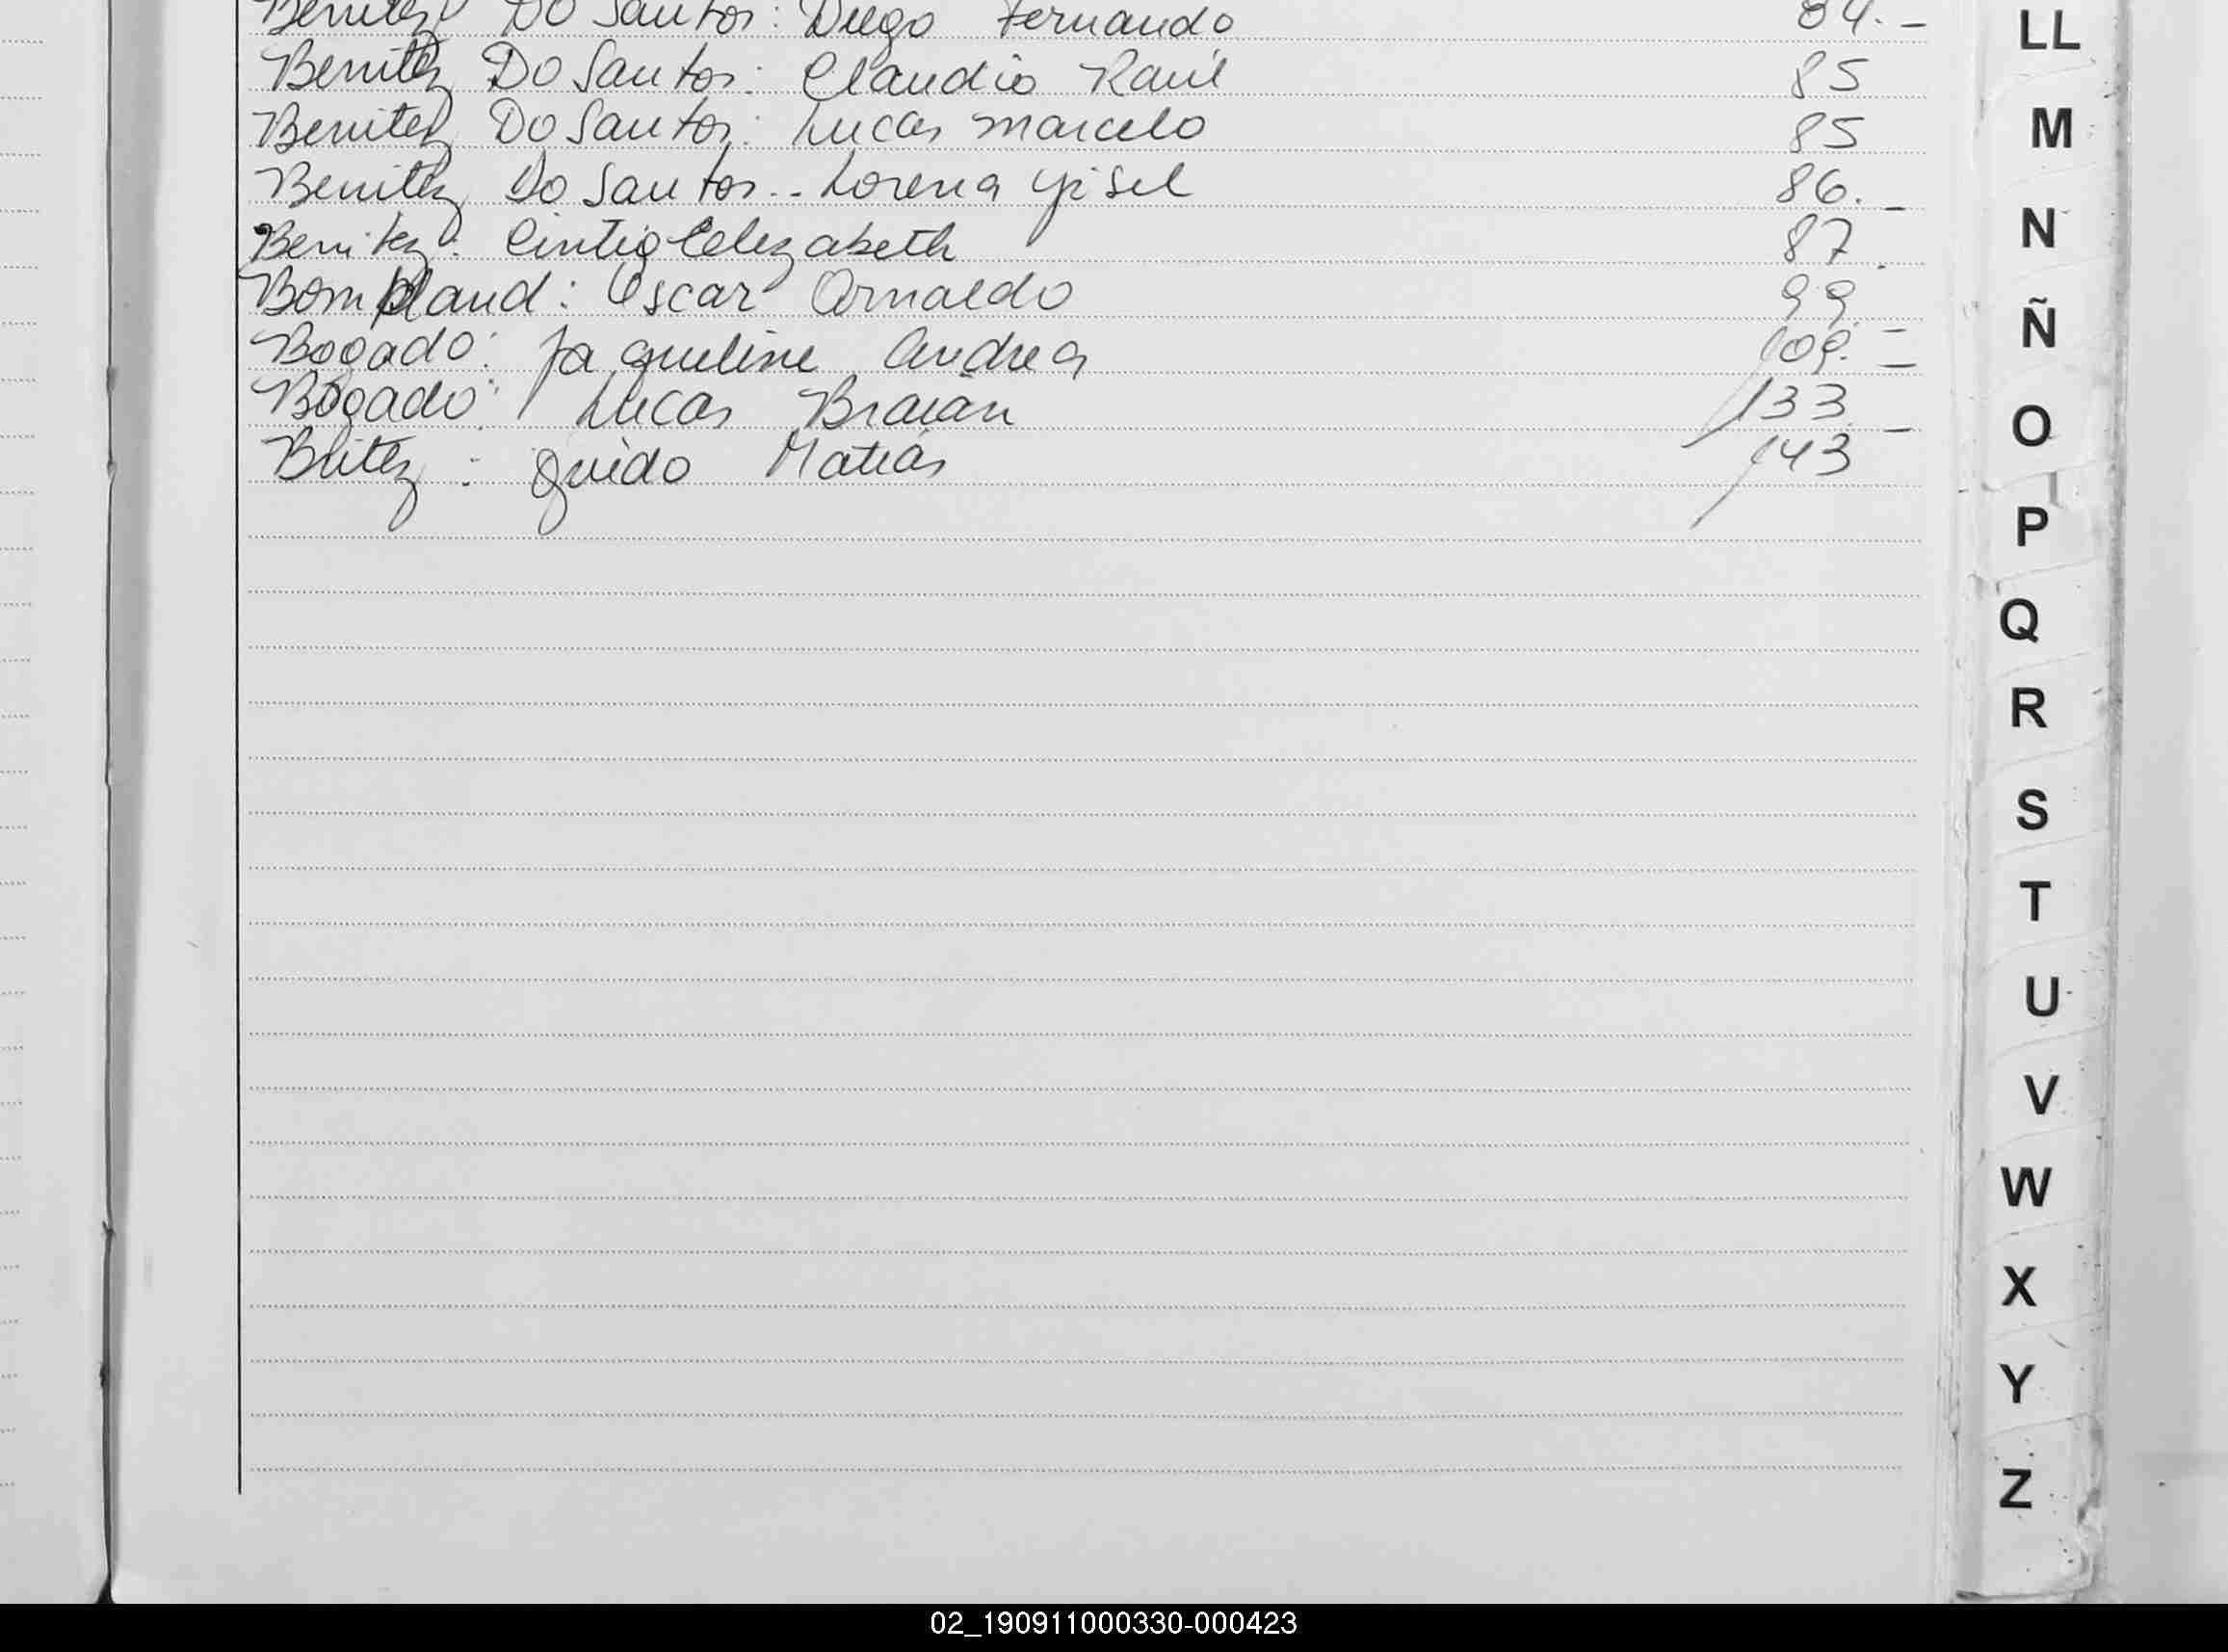 Benitez Do Santos: Diego Fernando 84.-
Benitez Do Santos: Claudio Raúl 85
Benitez Do Santos: Lucas Marcelo 85
Benitez Do Santos.- Lorena Yisel 86.-
Benitez: Cintia Elizabeth 87.
Bompland: Oscar Arnaldo 99.-
Bogado: Jaqueline Andrea 109.-
Bogado: Lucas Braian 133.-
Britez: Guido Matías 143
LL
M
N
Ñ
O
P
Q
R
S
T
U
V
W
X
Y
Z
02_190911000330-000423